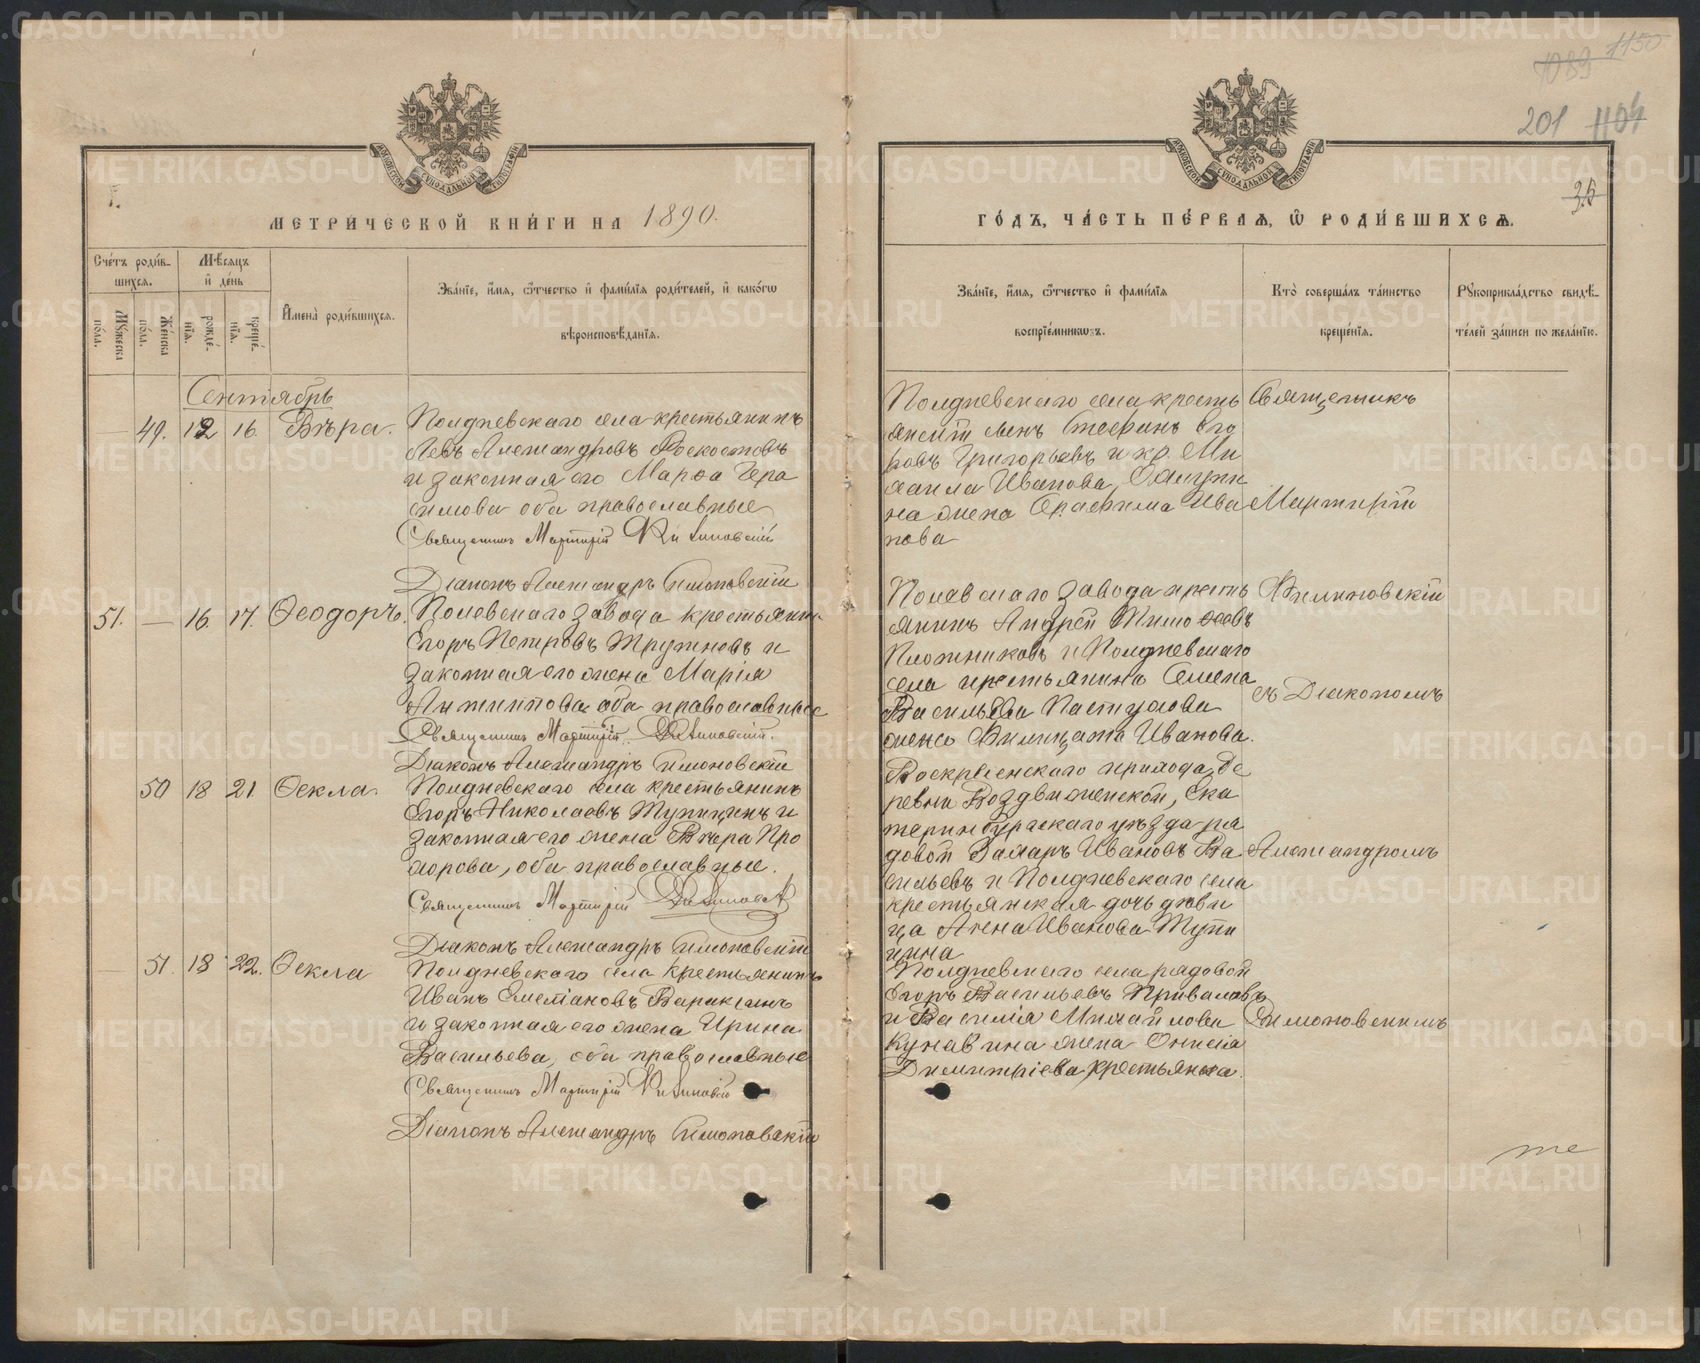 1089 1150
201 1104
35
МОСКОВСКОЙ СѴНОДАЛЬНОЙ ТИПОГРАФІИ
МОСКОВСКОЙ СѴНОДАЛЬНОЙ ТИПОГРАФІИ
МЕТРИ́ЧЕСКОЙ КНИ́ГИ НА 1890.
ГО́ДЪ, ЧА́СТЬ ПЕ́РВАЯ, Ѡ РОДИ́ВШИХСЯ.
Сче́тъ роди́в-
шихся.
Мѣ́сяцъ
и де́нь
Му́жеска
по́ла.
Же́нска
по́ла.
рожде́-
нїя.
креще́-
нїя.
Имена̀ роди́вшихся.
Зва́нїе, и́мя, ѻ́тчество и фами́лїя роди́телей, и како́гѡ
вѣроисповѣ́данїя.
Зва́нїе, и́мя, ѻ́тчество и фами́лїя
воспрїе́мникѡвъ.
Кто̀ соверша́лъ та́инство
креще́нїя.
Рꙋкоприкла́дство свидѣ́-
телей за́писи по жела́нїю.
Сентябрь
49. 12 16. Вѣра.
Полдневскаго села крестьянинъ
Левъ Александровъ
и законная его Марѳа Гера
симова оба православные
Священникъ Мартирій Филиновскій
Діаконъ Александръ Симоновскій
Полдневскаго села кресть
Стефанъ Его
ровъ Григорьевъ и кр. Ми
хаила Иванова
на жена Серафима Ива
нова
Священникъ
Мартирій
51. — 16. 17. Ѳеодоръ.
Полевскаго завода крестьянин
Егоръ Петровъ Тружновъ и
законная его жена Марія
оба православные
Священникъ Мартирій Филиновскій.
Діаконъ Александръ Симоновскій
Полевскаго завода кресть
янинъ Андрей Тимоѳеевъ
Плотниковъ и Полдневскаго
села крестьянина Семена
Васильева Пастухова
жена Иванова.
Филиновскій
съ Діакономъ
50 18 21 Ѳекла.
Полдневскаго села крестьянинъ
Егоръ Николаевъ Тупицинъ и
законная его жена Вѣра Про
хорова, оба православные.
Священникъ Мартирій Филиновскій
Діаконъ Александръ Симоновскій
Воскресенскаго прихода, де
ревни Воздвиженской, Ека
теринбургскаго уѣзда ря
довой Захаръ Ивановъ Ва
сильевъ и Полдневскаго села
крестьянская дочь дѣви
ца Анна Иванова Тупи
цина
Александромъ
51. 18 22. Ѳекла
Полдневскаго села крестьянинъ
Иванъ Емеліановъ Баракшинъ
и законная его жена Ирина
Васильева, оба православные
Священникъ Мартирій Филиновскій
Діаконъ Александръ Симоновскій
Полдневскаго села рядовой
Егоръ Васильевъ Приваловъ
и Василія Михайлова
Кунавина жена
Димитріева, крестьянка.
Симоновскимъ
те
METRIKI.GASO-URAL.RU